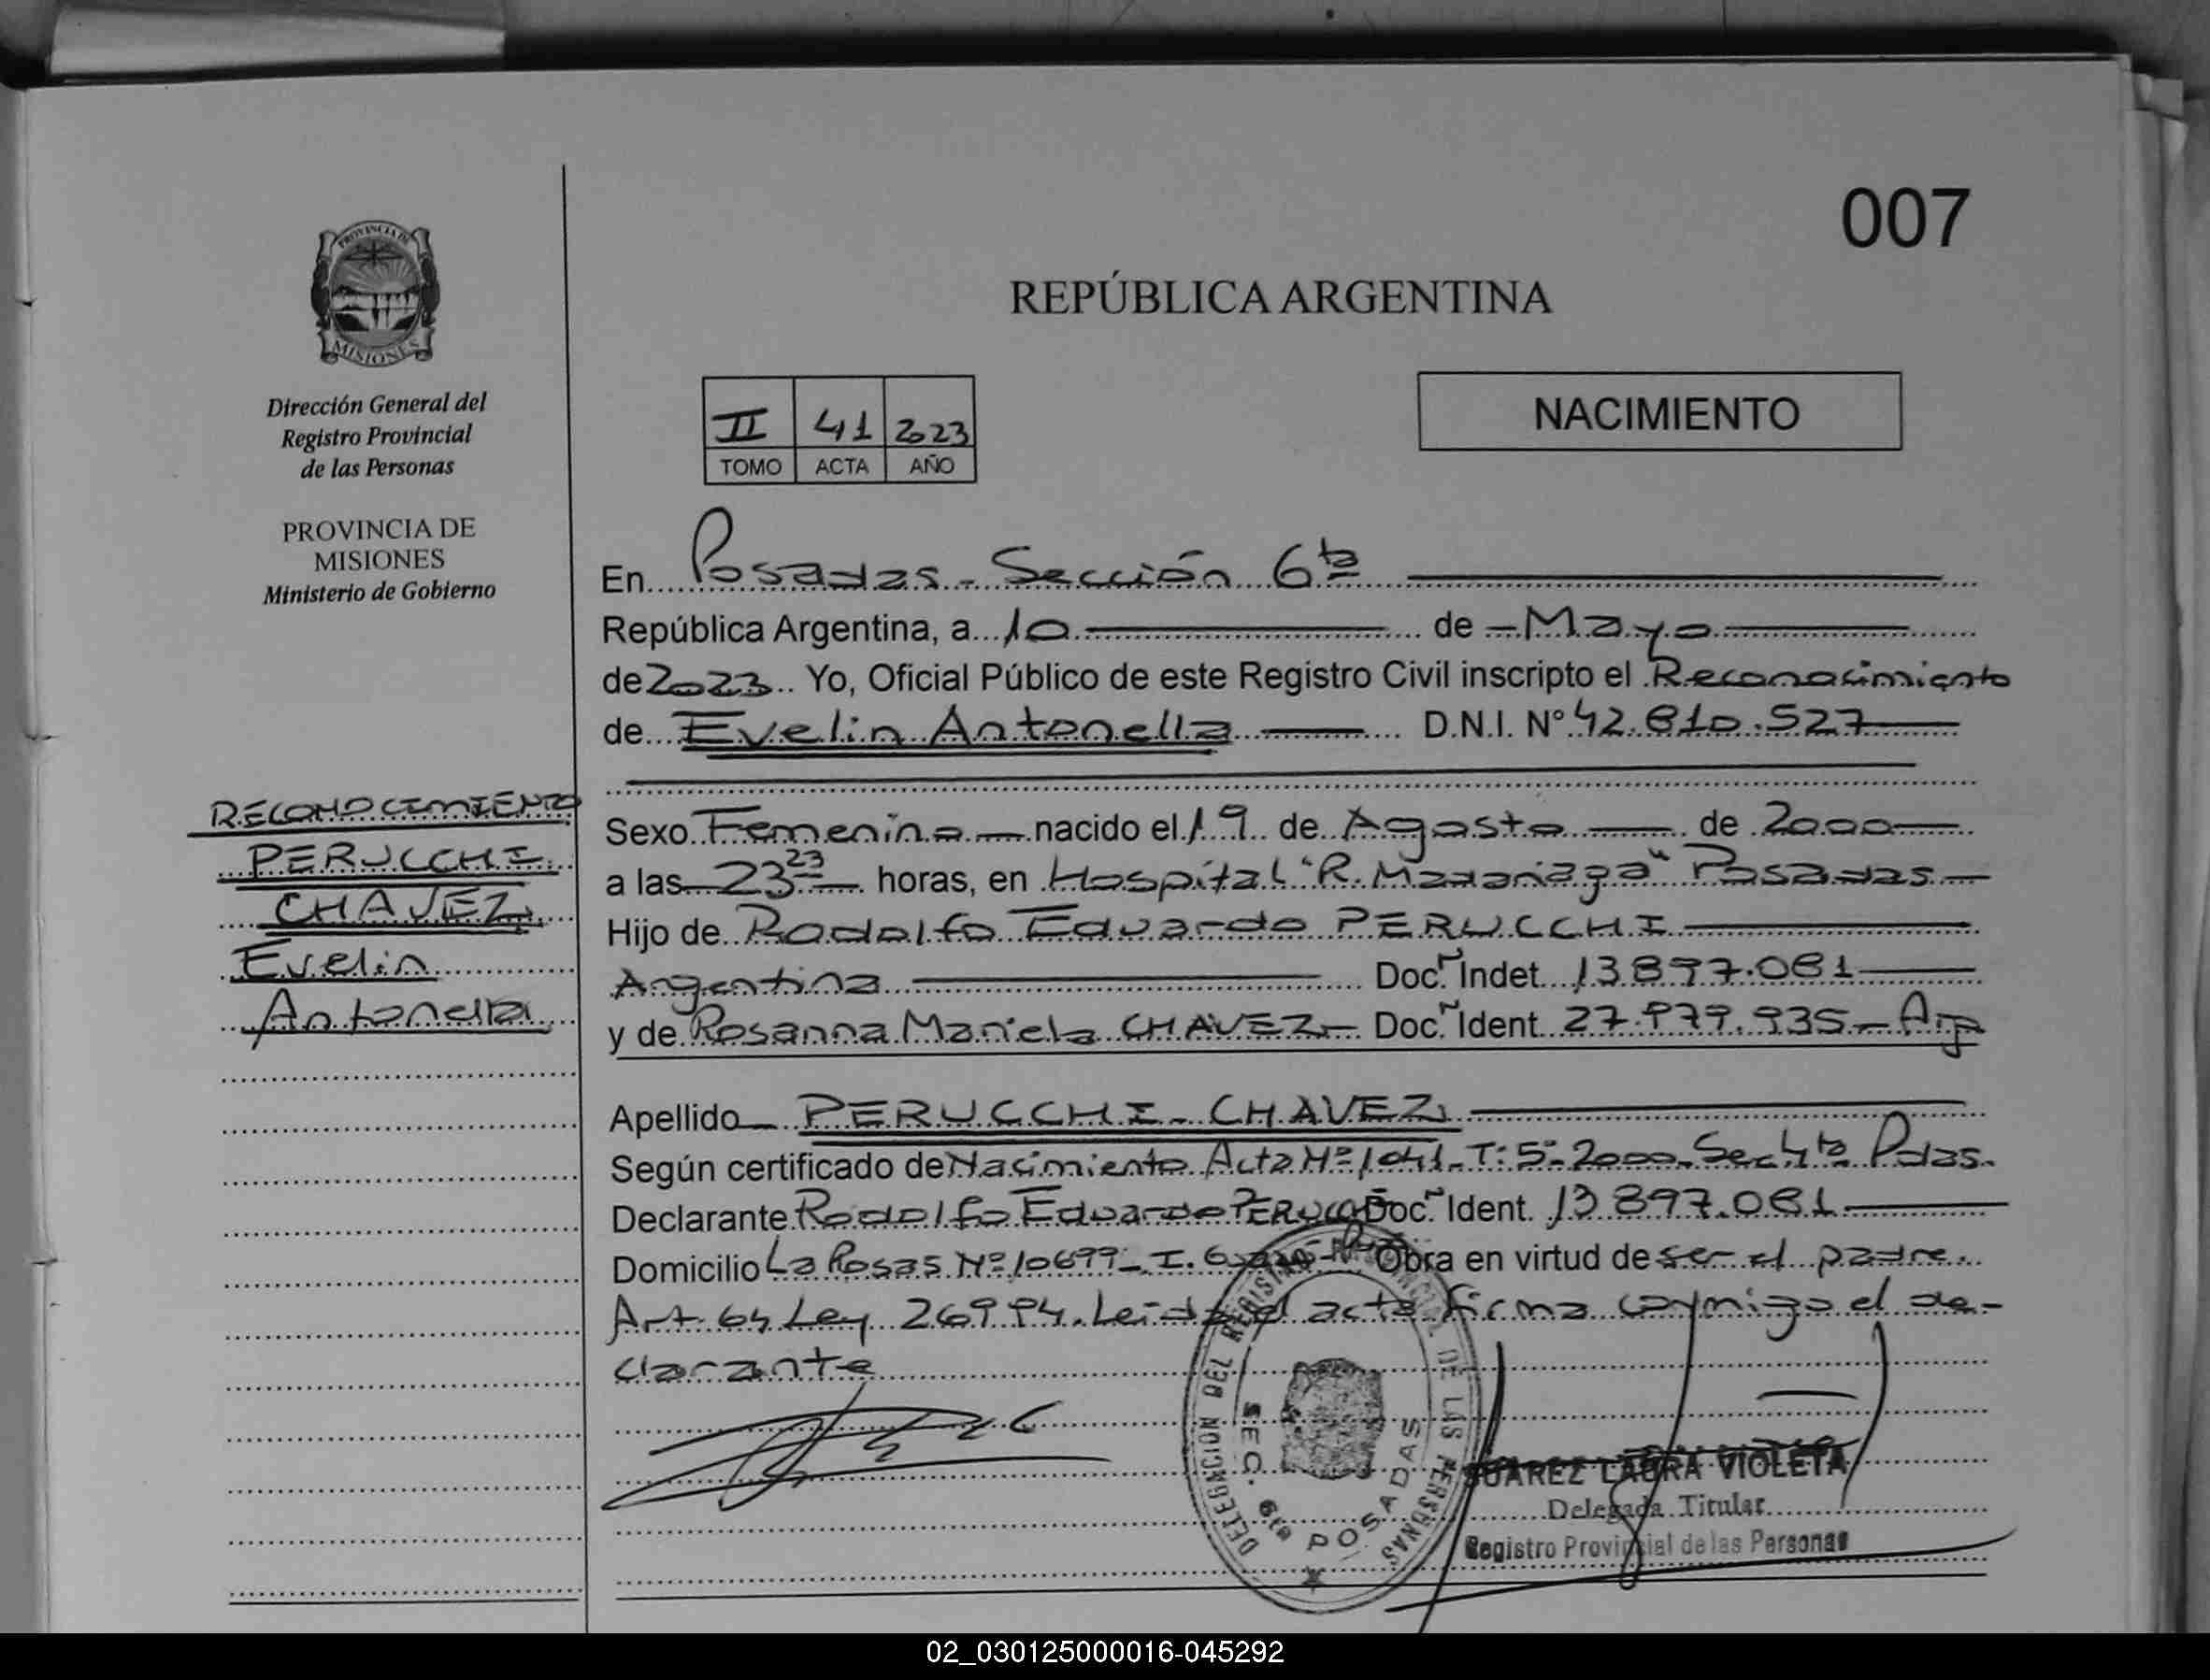 007
PROVINCIA DE
MISIONES
Dirección General del
Registro Provincial
de las Personas
PROVINCIA DE
MISIONES
Ministerio de Gobierno
RECONOCIMIENTO
PERUCCHI
CHAVEZ
Evelin
Antonella
REPÚBLICA ARGENTINA
II 41 2023
TOMO ACTA AÑO
NACIMIENTO
En Posadas - Sección 6ta
República Argentina, a 10 de Mayo
de 2023 Yo, Oficial Público de este Registro Civil inscripto el Reconocimiento
de Evelin Antonella D.N.I. N° 42.810.527
Sexo Femenino nacido el 19 de Agosto de 2000
a las 23 23 horas, en Hospital "R. Madariaga" Posadas
Hijo de Rodolfo Eduardo PERUCCHI
Argentina Doc. Indet. 13.897.081
y de Rosanna Mariela CHAVEZ Doc. Ident. 27.979.935 - Arg
Apellido PERUCCHI - CHAVEZ
Según certificado de Nacimiento Acta Nº 1041 - T: 5º 2000. Sec 4ta Pdas.
Declarante Rodolfo Eduardo PERUCCHI Doc. Ident. 13 897.081
Domicilio La Rosas Nº 10699 - I. Obra en virtud de ser el padre.
Art. 64 Ley 26994. Leida el acta firma conmigo el de-
clarante
DELEGACION DEL REGISTRO PROVINCIAL DE LAS PERSONAS
SEC. 6ta POSADAS
SUAREZ LAURA VIOLETA
Delegada Titular
Registro Provincial de las Personas
02_030125000016-045292